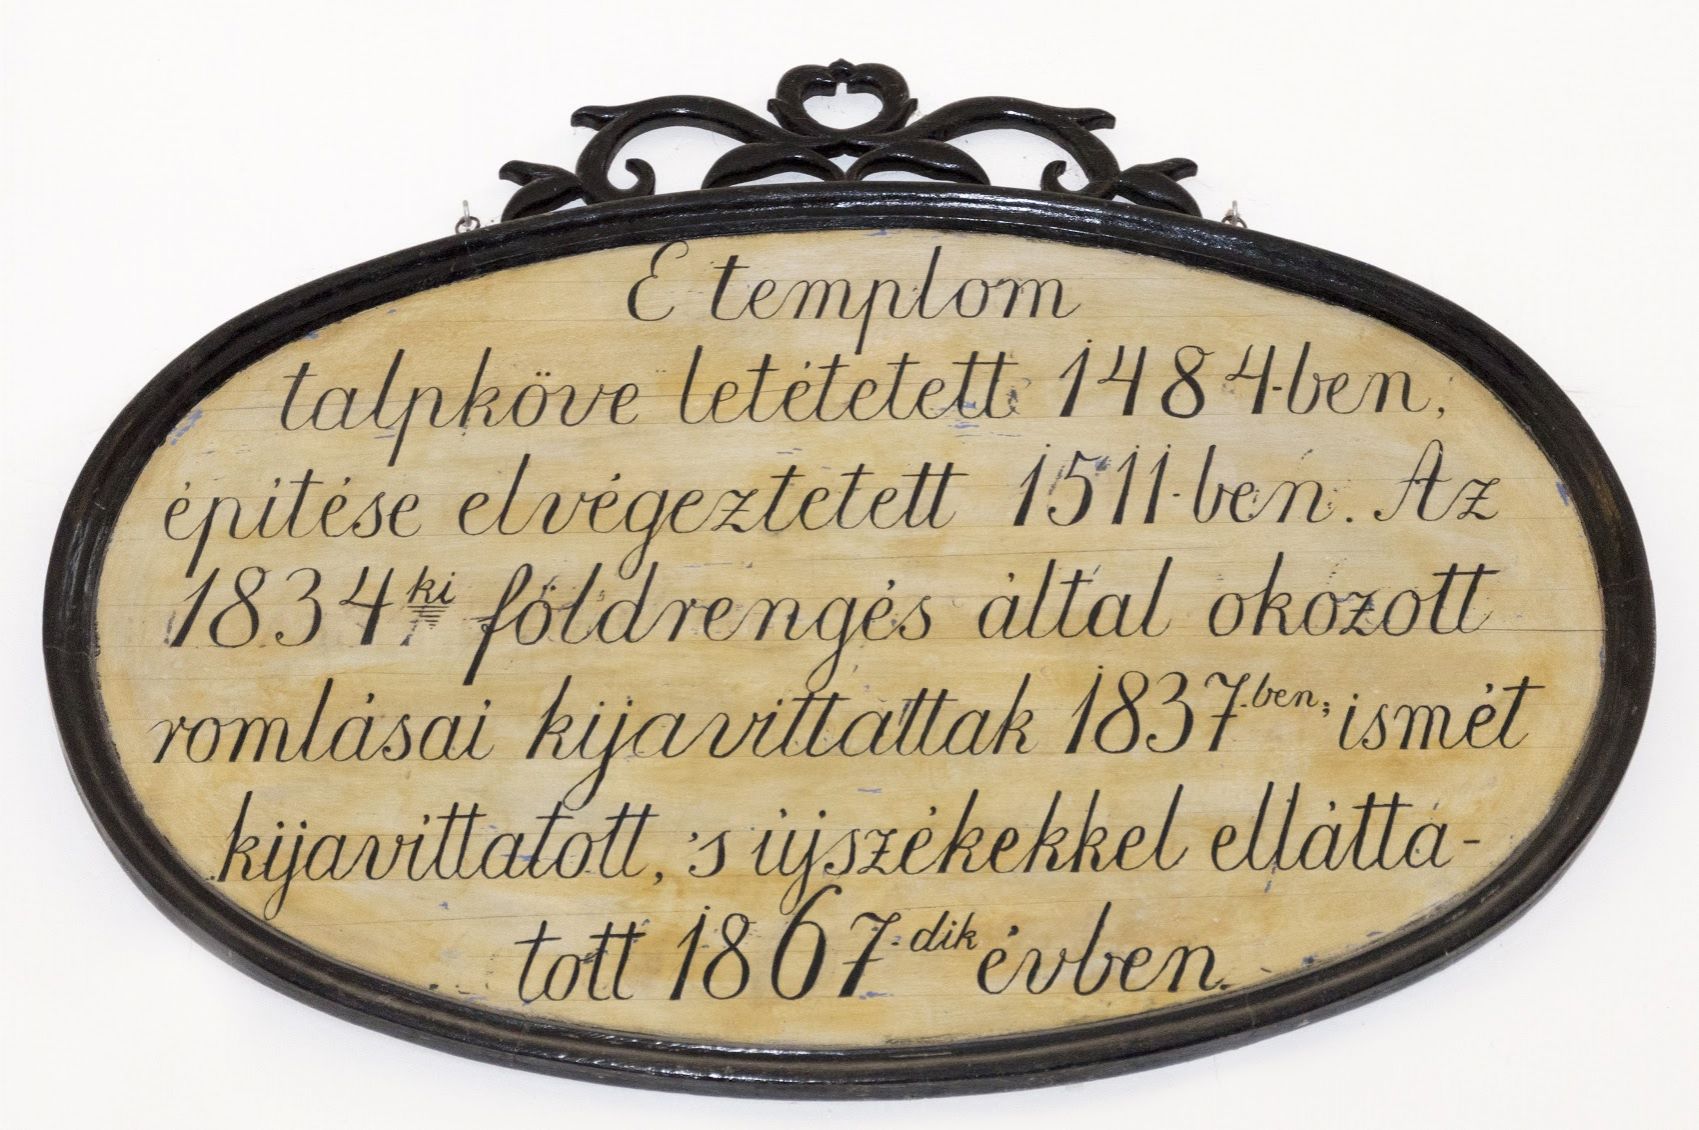 E templom
talpköve letétetett 1484-ben,
épitése elvégeztetett 1511-ben. Az
1834ki földrengés által okozott
romlásai kijavittattak 1837-ben; ismét
kijavittatott, 's újszékekkel elláttá-
tott 1867-dik évben.